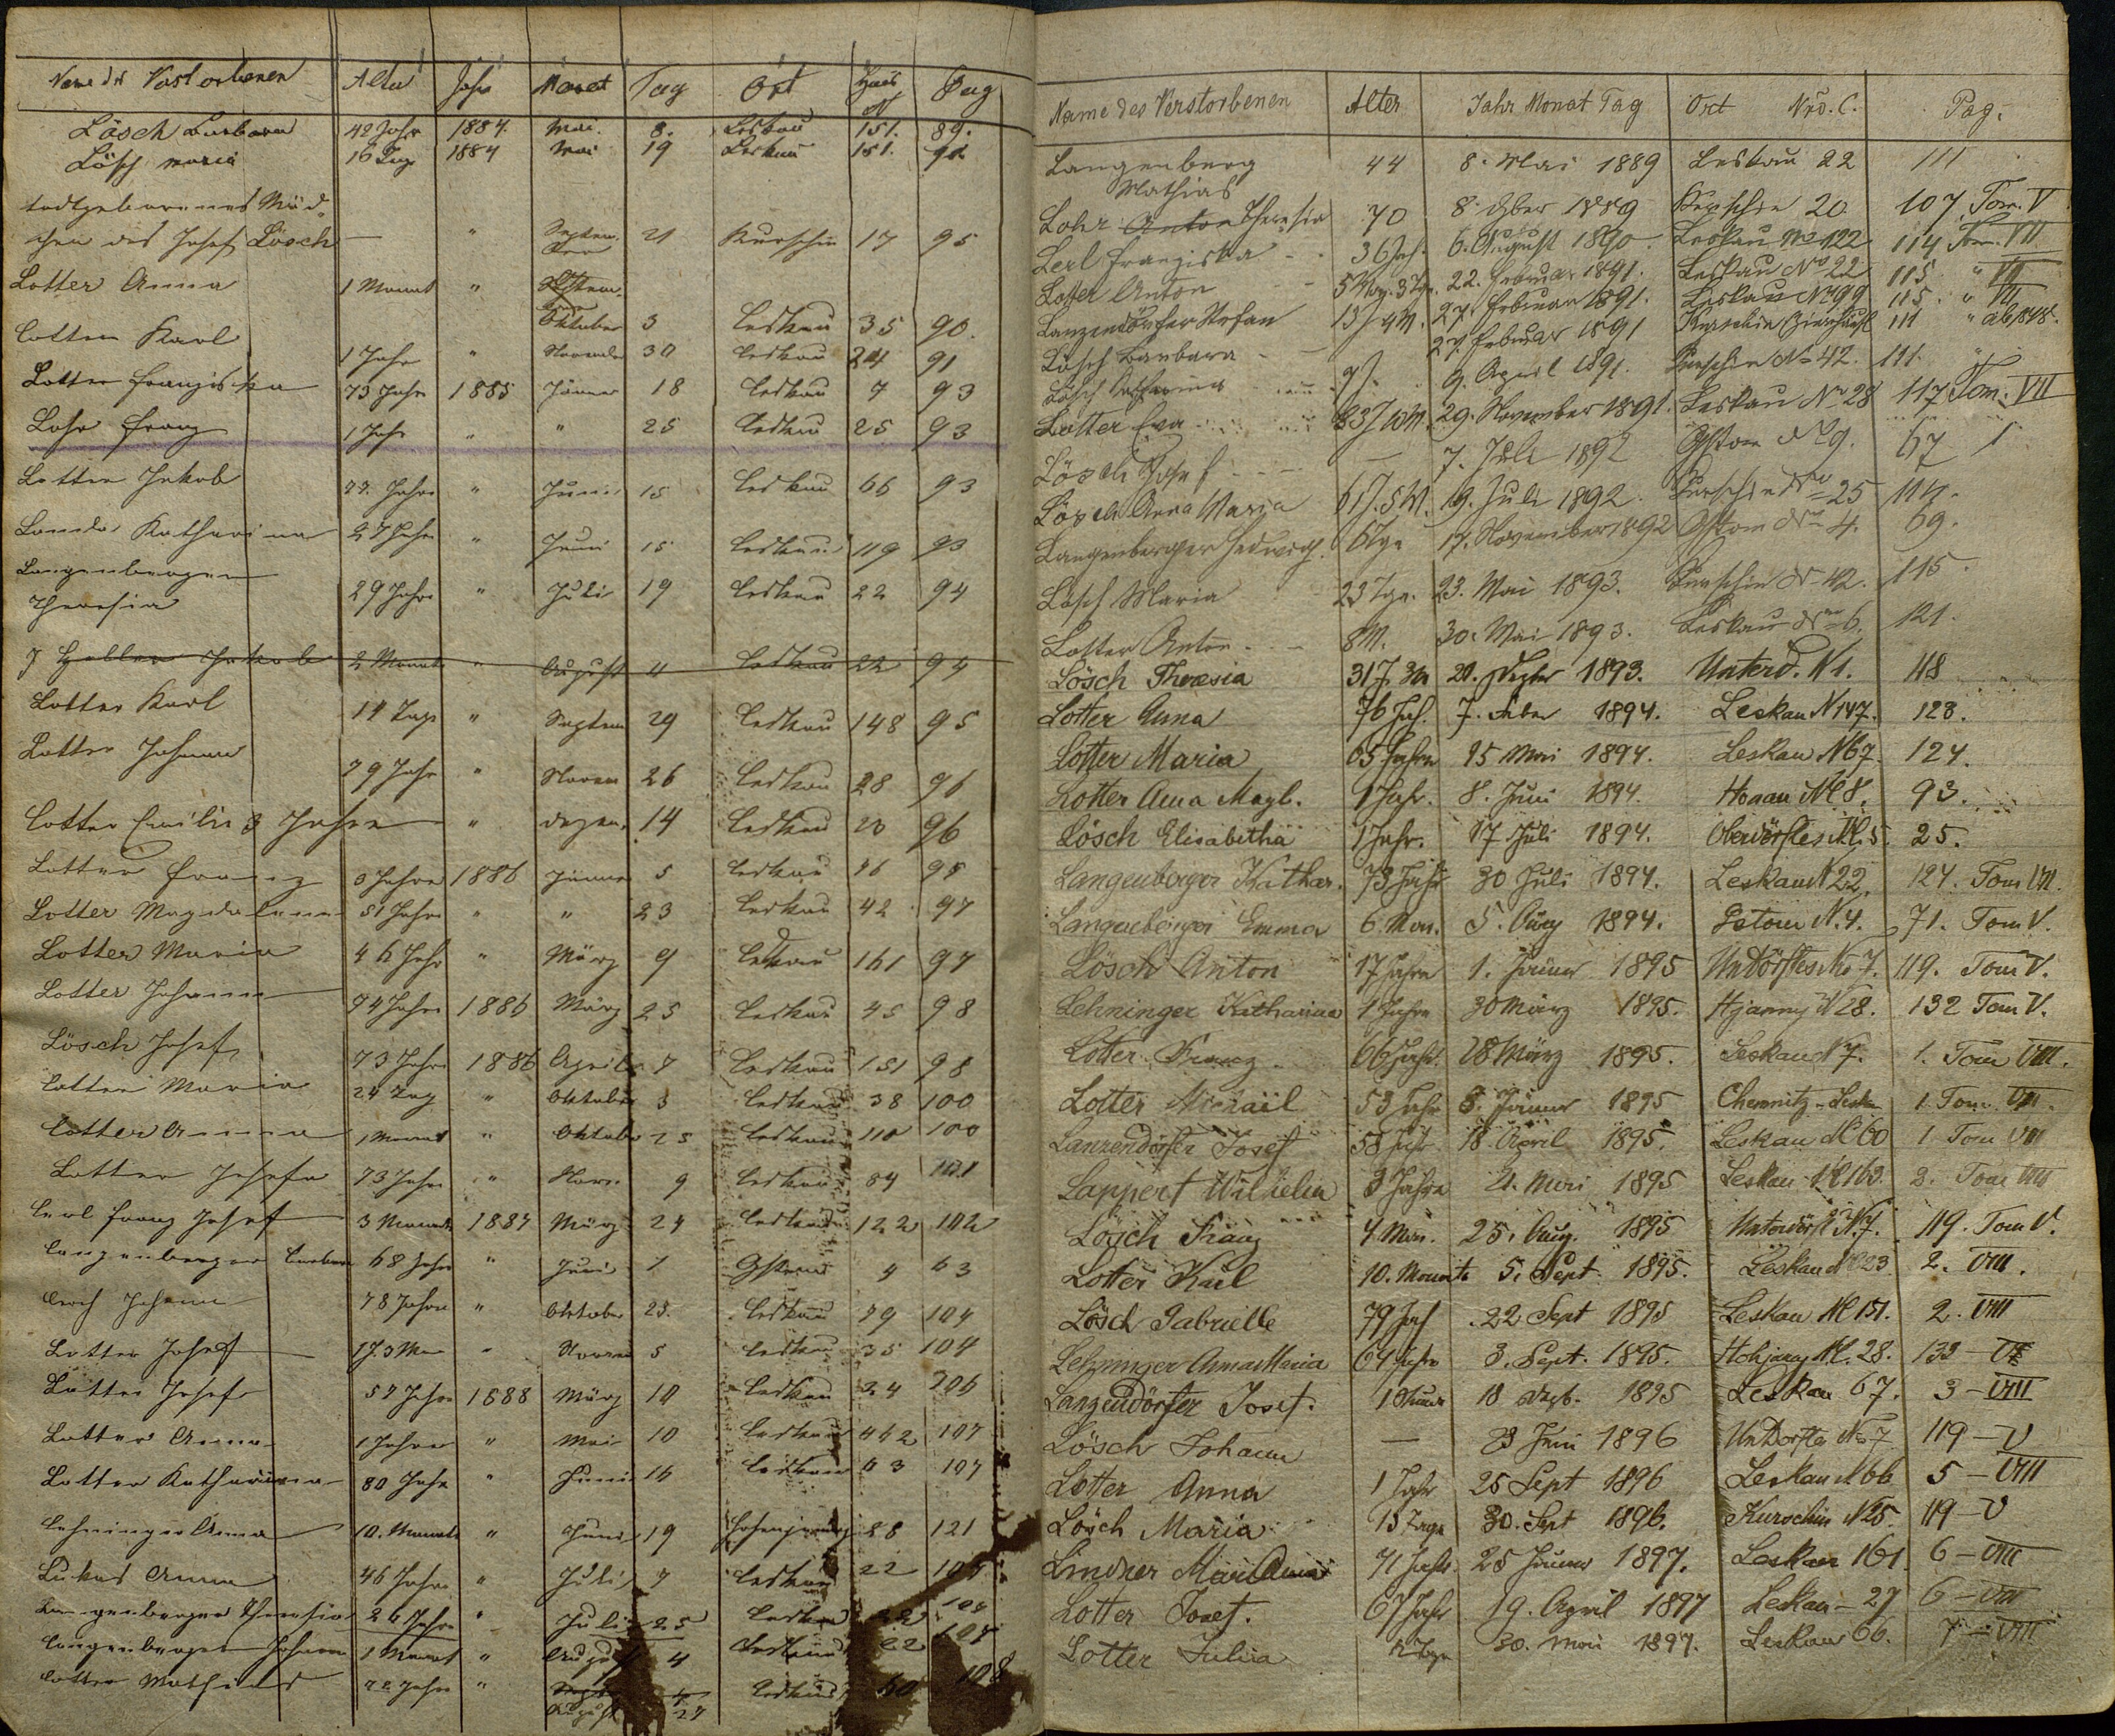 Name des Verstorbenen Alter Jahr Monat Tag Ort Haus N Pag
Lösch Barbara 42 Jahr 1884. Mai. 8. Leskau 151. 89.
Lösch Maria 16 Tage 1884 Mai 19 Leskau 151.
todtgeborenes Mäd-
chen des Josef Lösch — " Septem-ber 21 Kurschin 17 95
Lotter Anna 1 Monat " Oktober 3 Leskau 35 90.
Lotter Karl 1 Jahr " November 30 Leskau 24 91
Lotter Franziska 73 Jahre 1885 Jänner 18 Leskau 7 93
Lohr Franz 1 Jahr " " 25 Leskau 25 93
Lotter Jakob 77. Jahre " Juni 15 Leskau 66 93
Katharina 27 Jahre " Juni 15 Leskau 119 93
Langenberger
Theresia 29 Jahre " Juli 19 Leskau 22 94
Jakob 2 Monate " August 4 Leskau 22 94
Lotter Karl 14 Tage " Septem 29 Leskau 148 95
Lotter Johann 79 Jahr " Novem 26 Leskau 28 96
Lotter Emilie 3 Jahre " Dezem. 14 Leskau 20 96
Lotter Franz 3 Jahre 1886 Jänner 5 Leskau 46 95
Lotter Magdalena 51 Jahre " " 23 Leskau 42 97
Lotter Maria 46 Jahr " März 9 Leskau 161 97
Lotter Johann 74 Jahre 1886 März 25 Leskau 45 98
Lösch Josef 73 Jahre 1886 April 7 Leskau 151 98
Lotter Maria 24 Tag " Oktober 3 Leskau 38 100
Lotter Anna 1 Monat " Oktober 25 Leskau 110 100
Lotter Josefa 73 Jahre " Nov. 9 Leskau 84 101
Lerl Franz Josef 3 Monate 1887 März 24 Leskau 122 102
Langenberger Barbara 68 Jahre " Juni 1 Gstom 4 63
Lerch Johann 78 Jahre " Oktober 23. Leskau 79 104
Lotter Josef 1J. 3 Mon " Novem 5 Leskau 35 104
Lotter Josef 57 Jahre 1888 März 10 Leskau 24 106
Lotter Anna 1 Jahre " Mai 10 Leskau 107
Lotter Katharina 80 Jahr " Juni 14 Leskau 63 107
Lehninger Anna 10. Monate " Juni 19 28 121
Lukas Anna 46 Jahre " Juli 7 Leskau 22 108
Langenberger Theresia 26 Jahre " Juli 25 Leskau 22 108
Langenberger Johann 1 Monat " August 4 Leskau 22 108
Lotter Mathias Jahre " August 27 Leskau 60 108
Name des Verstorbenen Alter Jahr Monat Tag Ort Nro. C. Pag.
Langenberg
Mathias 44 8. Mai 1889 Leskau 22 111
Lohr Anton Theresia 70 8. 1889 Kurschin 20 107. Tom. V
Lerl Franziska 36 Jah. 6. August 1890. Leskau No 122 114 Tom. VII
Lotter Anton 22. Februar 1891. Leskau No 22 115 " VII
Lanzendörfer Stefan 27. Februar 1891. Leskau No 99 115. " VII
Lösch Barbara 27. Februar 1891 Kurschin 111
Lösch Katharina 9. April 1891. Kurschin No 42. 111. "
Lotter Eva 29. November 1891. Leskau No 28 117 Tom. VII
Lösch Josef — 7. Juli 1892 Gstom No 9. 67
Lösch Anna Maria 61 J. 5 M. 9. Juli 1892. Kurschin No 25 114.
Langenberger Hedwig. 6 Tge 17. November 1892 Gstom No 4. 69.
Lösch Maria 23 Tge. 23. Mai 1893. Kurschin No 42. 115.
Lotter Anton 8 M. 30. Mai 1893. Leskau No 6. 121.
Lösch Theresia 31 J. 20. Dezbr 1893. Unterd. N 1. 118
Lotter Anna 76 Jah. 7. Feber 1894. Leskau N 147. 123.
Lotter Maria 65 Jahre 15 Mai 1894. Leskau N 67. 124.
Lotter Anna Magl. 1 Jahr. 8. Juni 1894. No 8. 93.
Lösch Elisabetha 1 Jahr. 17 Juli 1894. Oberdörfles No. 5. 25.
Langenberger Kathar. 73 Jahr 30 Juli 1894. Leskau N 22. 124. Tom VII.
Langenberger Emma 6 Mon. 5. Aug 1894. Gstom N. 4. 71. Tom V.
Lösch Anton 17 Jahre 1. Jänner 1895 UnDörfles No 7. 119. Tom V.
Lehninger Katharina 1 Jahre 30 März 1895. Hjamny N 28. 132 Tom V.
Lotter Franz 66 Jahr. 28 März 1895. Leskau N 7. 1. Tom VIII.
Lotter Michail 53 Jahr Jänner 1895 Chemnitz-Leska 1 Tom. VIII.
Lanzendörfer Josef 58 Jahr 18 April 1895. Leskau No 60 1 Tom VIII
Lappert Wilhelm 3 Jahre 4. Mai 1895 Leskau No 163. 2. Tom VIII
Lösch Franz 4 Mon. 25. Aug. 1895 Unterdörfl N. 7. 119. Tom V.
Lotter Karl 10. Monate 5. Sept. 1895. Leskau No 23 2. VIII.
Lösch Gabrielle 79 Jah 22 Sept 1895 Leskau No 151. 2. VIII
Lehninger Anna Maria 64 Jahre 3. Sept. 1895. Hohjamny No. 28. 133 -
Langendörfer Josef. 18 Dezb. 1895 Leskau 67. 3 - VIII
Lösch Johann — 23 Juni 1896 UnDorfles No 7 119 - V
Lotter Anna 1 Jahr 25 Sept 1896 Leskau N 66 5 - VIII
Lösch Maria 15 Tage 30. Sept 1896. Kurschin N 25 119 - V
Lindner Maria Anna 71 Jahr 25 Jänner 1897. Leskau 161 6 - VIII
Lotter Josef. 67 Jahr 19. April 1897 Leskau - 27 6 - VIII
Lotter Julia Tge 30. Mai 1897. Leskau 66. 7 - VIII